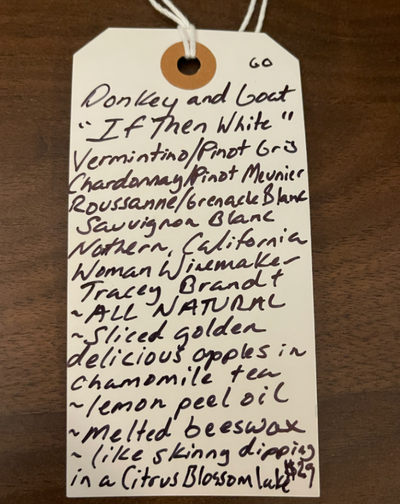 GO
Donkey and Goat
"If Then White"
Vermintino/Pinot Gris
Chardonnay/Pinot Meunier
Roussanne/Grenache Blanc
Sauvignon Blanc
Nothern, California
Woman Winemaker
Tracey Brandt
~ALL NATURAL
~Sliced golden
delicious apples in
chamomile tea
~lemon peel oil
~Melted beeswax
~like skinny dipping
in a Citrus Blossom lake
$29